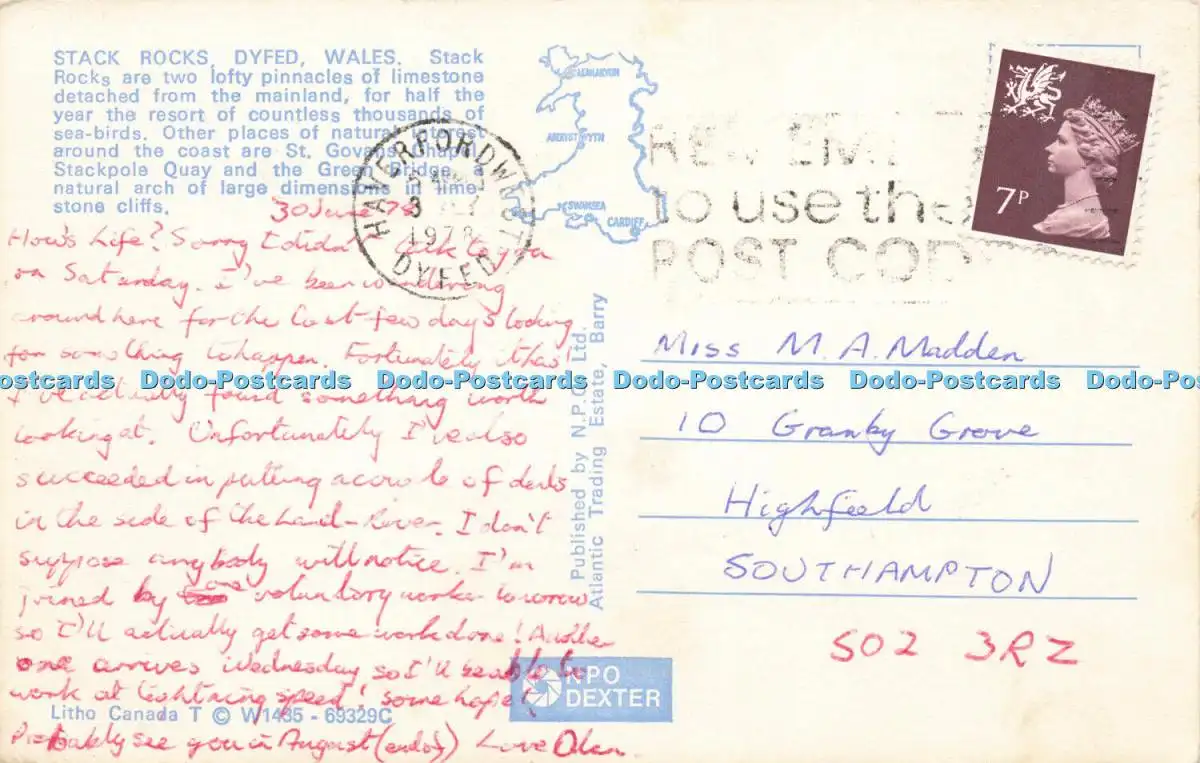 STACK ROCKS, DYFED, WALES. Stack
Rocks are two lofty pinnacles of limestone
detached from the mainland, for half the
year the resort of countless thousands of
sea-birds. Other places of natural interest
around the coast are St. Govans Chapel,
Stackpole Quay and the Green Bridge, a
natural arch of large dimensions in lime-
stone cliffs.
CAERNARVON
ABERYSTWYTH
SWANSEA
CARDIFF
HAVERFORDWEST
1978
DYFED
REMEMBER
to use the
POST CODE
7P
30 June 78
How's Life? Sorry I didn't to you
on Saturday. I've been wandering
around here for the last few days looking
for something to happen. Fortunately it has!
I've actually found something worth
looking at. Unfortunately I've also
succeeded in putting a couple of dents
in the side of the Land-Rover. I don't
suppose anybody will notice. I'm
joined by one voluntary worker tomorrow
so I'll actually get some work done! Another
one arrives Wednesday so I'll be able to be
work at lightning speed! some hope!
Probably see you in August (end of) Love
Miss M. A. Madden
10 Granby Grove
Highfield
SOUTHAMPTON
SO2 3RZ
Published by N.P.O. Ltd.
Atlantic Trading Estate, Barry
NPO
DEXTER
Litho Canada T © W1435 - 69329C
Dodo-Postcards Dodo-Postcards Dodo-Postcards Dodo-Postcards Dodo-Postcards